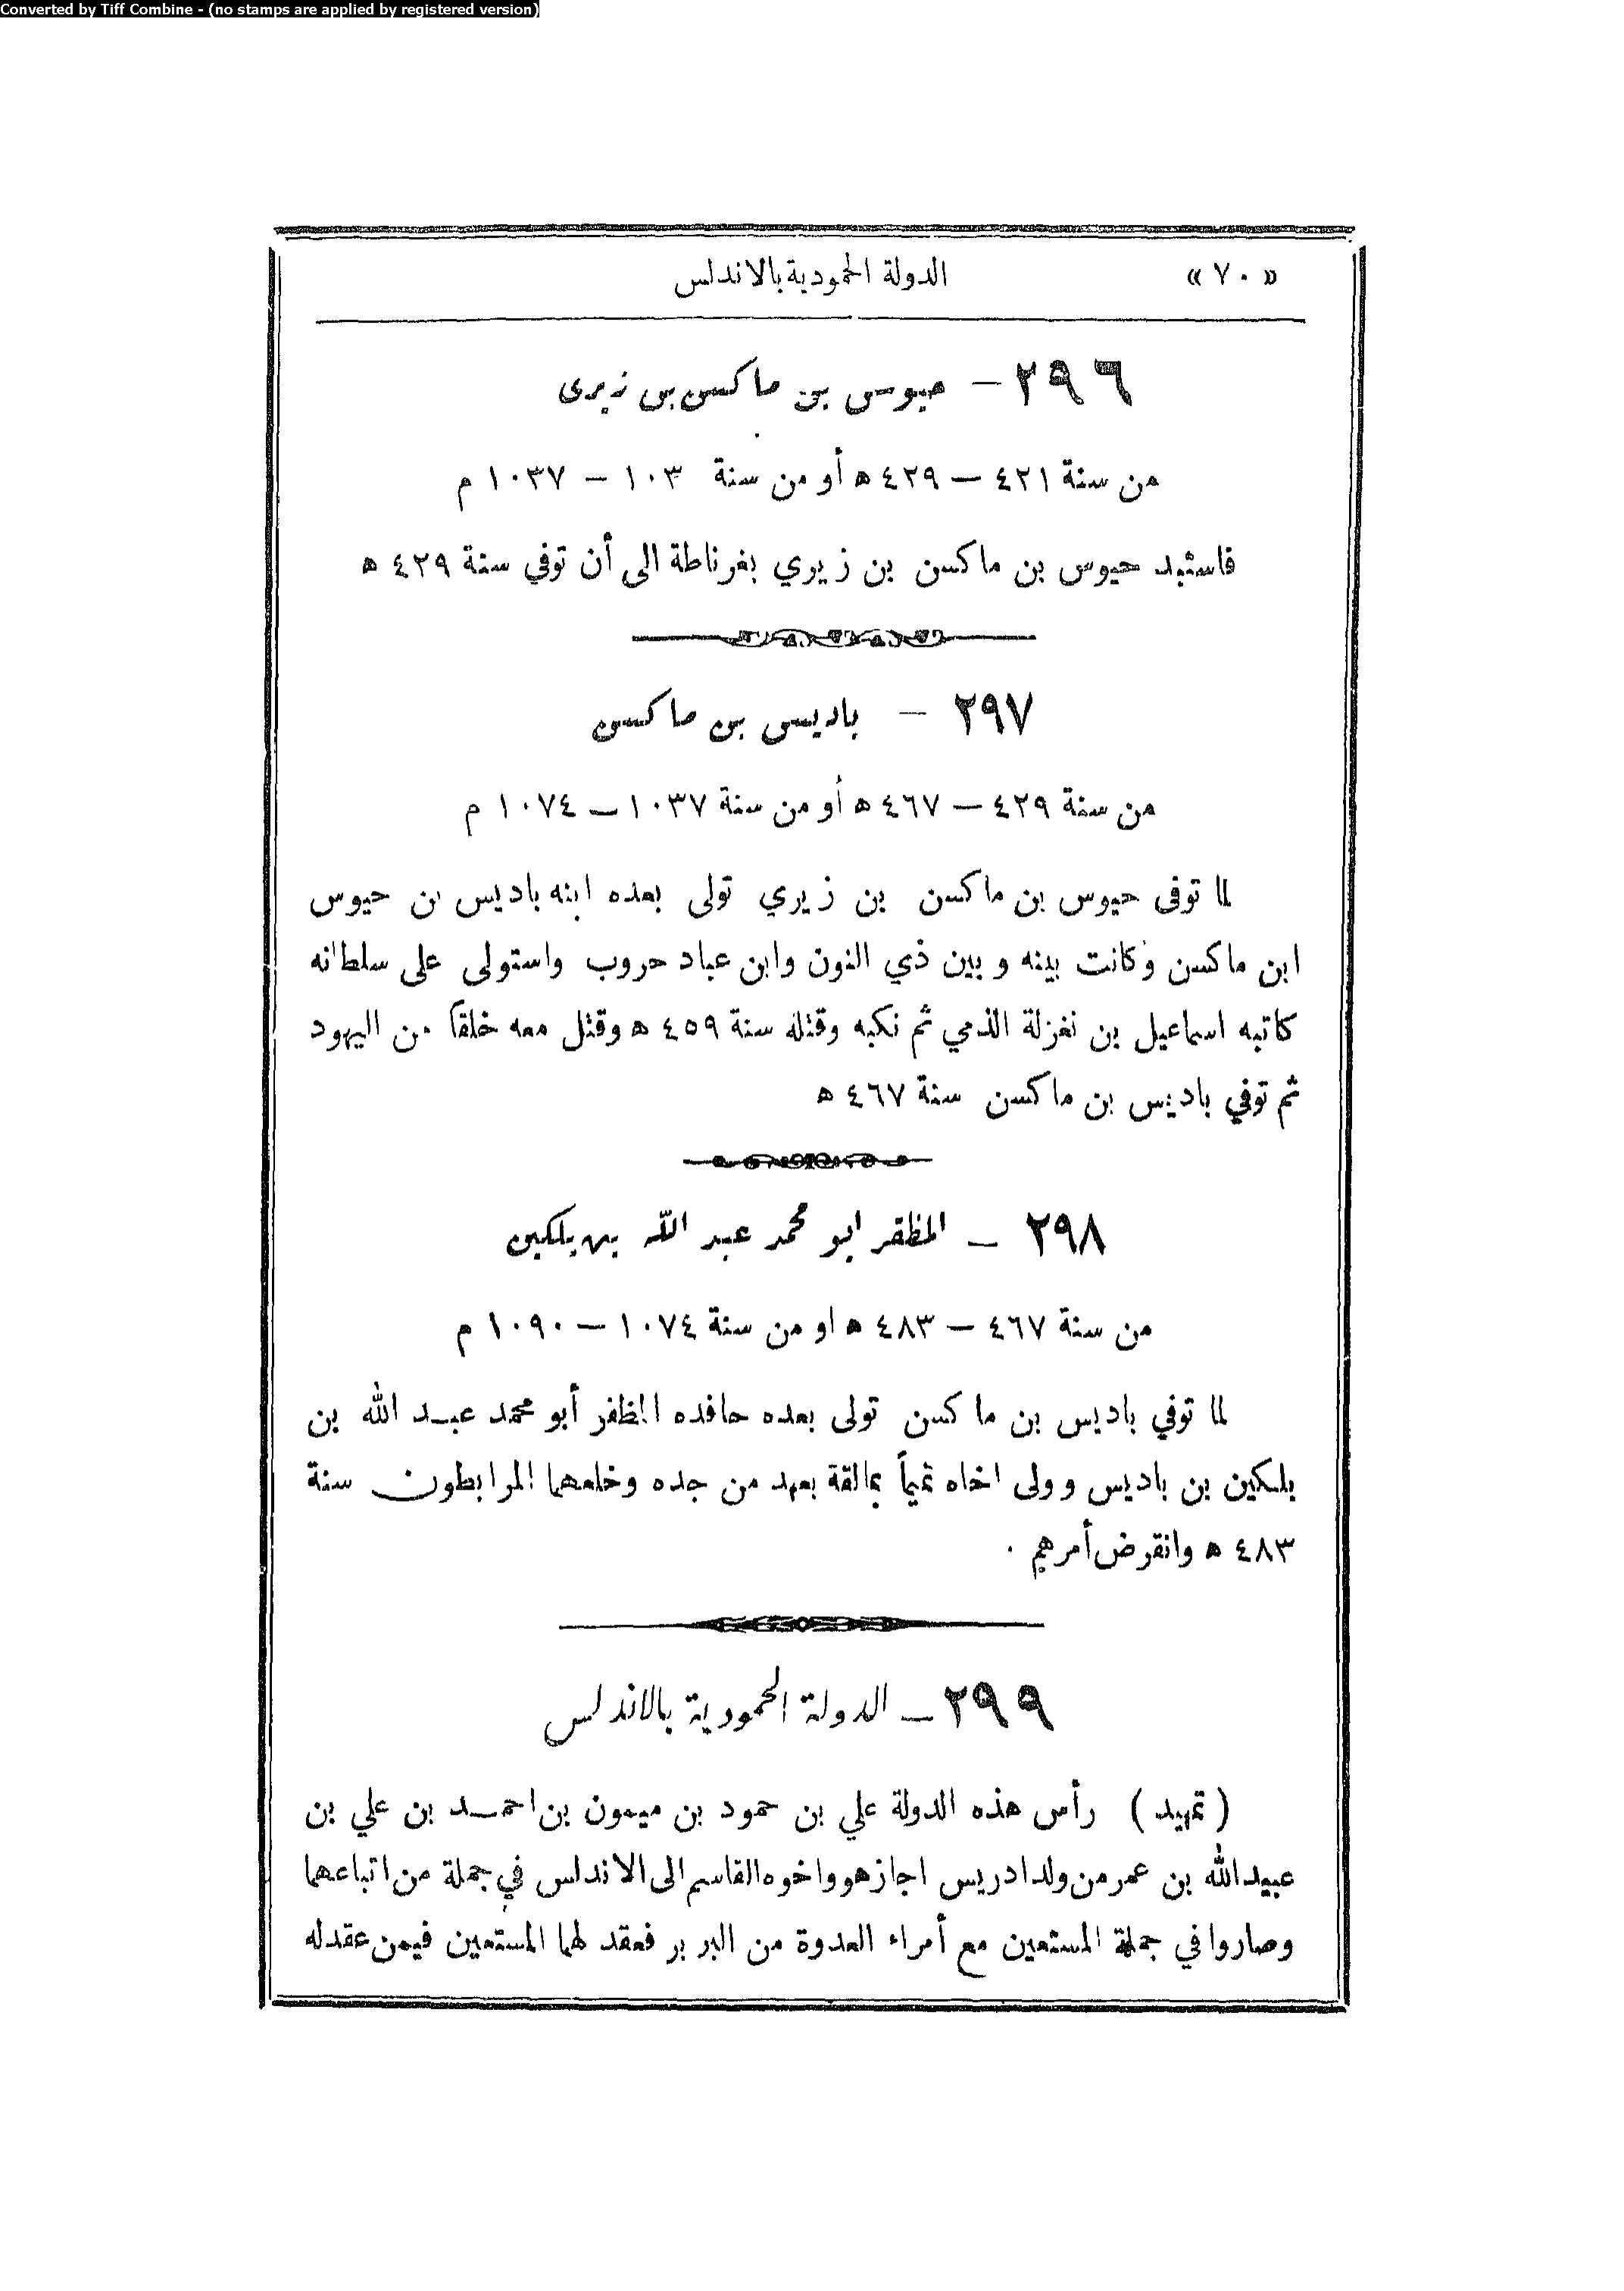 Converted by Tiff Combine - (no stamps are applied by registered version)
« ٧٠ » الدولة الحمودية بالاندلس
٢٩٦ – حيوس بن ماكسن بن زيرى
من سنة ٤٢١ – ٤٢٩ ه أو من سنة ١٠٣ – ١٠٣٧ م
فاستبد حيوس بن ماكسن بن زيري بغرناطة الى أن توفي سنة ٤٢٩ ه
٢٩٧ – باديس بن ماكسن
من سنة ٤٢٩ – ٤٦٧ ه أو من سنة ١٠٣٧ – ١٠٧٤ م
لما توفى حيوس بن ماكسن بن زيري تولى بعده ابنه باديس بن حيوس
ابن ماكسن وكانت بينه وبين ذي النون وابن عباد حروب واستولى على سلطانه
كاتبه اسماعيل بن نغزلة الذمي ثم نكبه وقتله سنة ٤٥٩ ه وقتل معه خلقاً من اليهود
ثم توفي باديس بن ماكسن سنة ٤٦٧ ه
٢٩٨ – المظفر ابو محمد عبد الله بن بلكين
من سنة ٤٦٧ – ٤٨٣ ه او من سنة ١٠٧٤ – ١٠٩٠ م
لما توفي باديس بن ماكسن تولى بعده حافده المظفر أبو محمد عبد الله بن
بلكين بن باديس وولى اخاه تميماً بمالقة بعهد من جده وخلعهما المرابطون سنة
٤٨٣ ه وانقرض أمرهم .
٢٩٩ – الدولة الحمودية بالاندلس
( تمهيد ) رأس هذه الدولة علي بن حمود بن ميمون بن احمد بن علي بن
عبيدالله بن عمر من ولد ادريس اجاز هو واخوه القاسم الى الاندلس في جملة من اتباعهما
وصاروا في جملة المستعين مع أمراء العدوة من البربر فعقد لهما المستعين فيمن عقد له